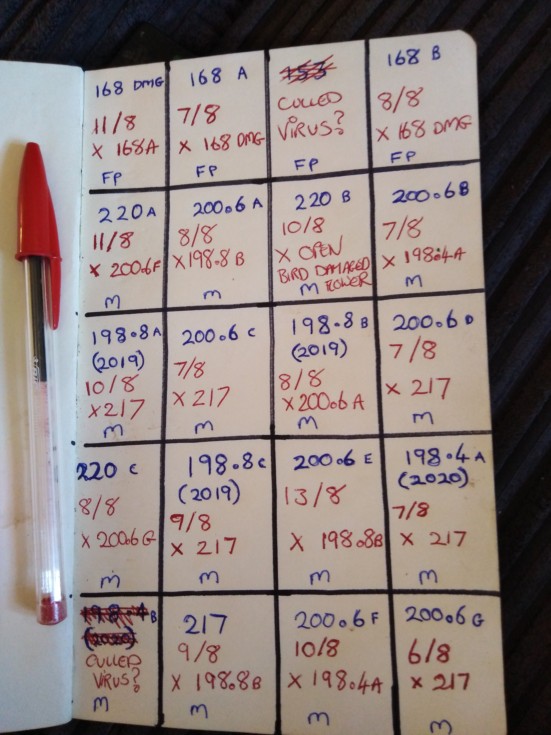 168 DMG
11/8
X 168A
FP
168 A
7/8
X 168 DMG
FP
153
CULLED
VIRUS?
FP
168 B
8/8
X 168 DMG
FP
220A
11/8
X 200.6F
M
200.6 A
8/8
X198.8 B
M
220 B
10/8
X OPEN
BIRD DAMAGED
M FLOWER
200.6B
7/8
X 198.4A
M
198.8A
(2019)
10/8
X217
M
200.6 C
7/8
X 217
M
198.8 B
(2019)
8/8
X200.6 A
M
200.6 D
7/8
X 217
M
220 C
8/8
X 200.6G
M
198.8C
(2019)
9/8
X 217
M
200.6 E
13/8
X 198.8B
M
198.4 A
(2020)
7/8
X 217
M
198.4B
(2020)
CULLED
VIRUS?
M
217
9/8
X 198.8B
M
200.6 F
10/8
X 198.4A
M
200.6 G
6/8
X 217
M